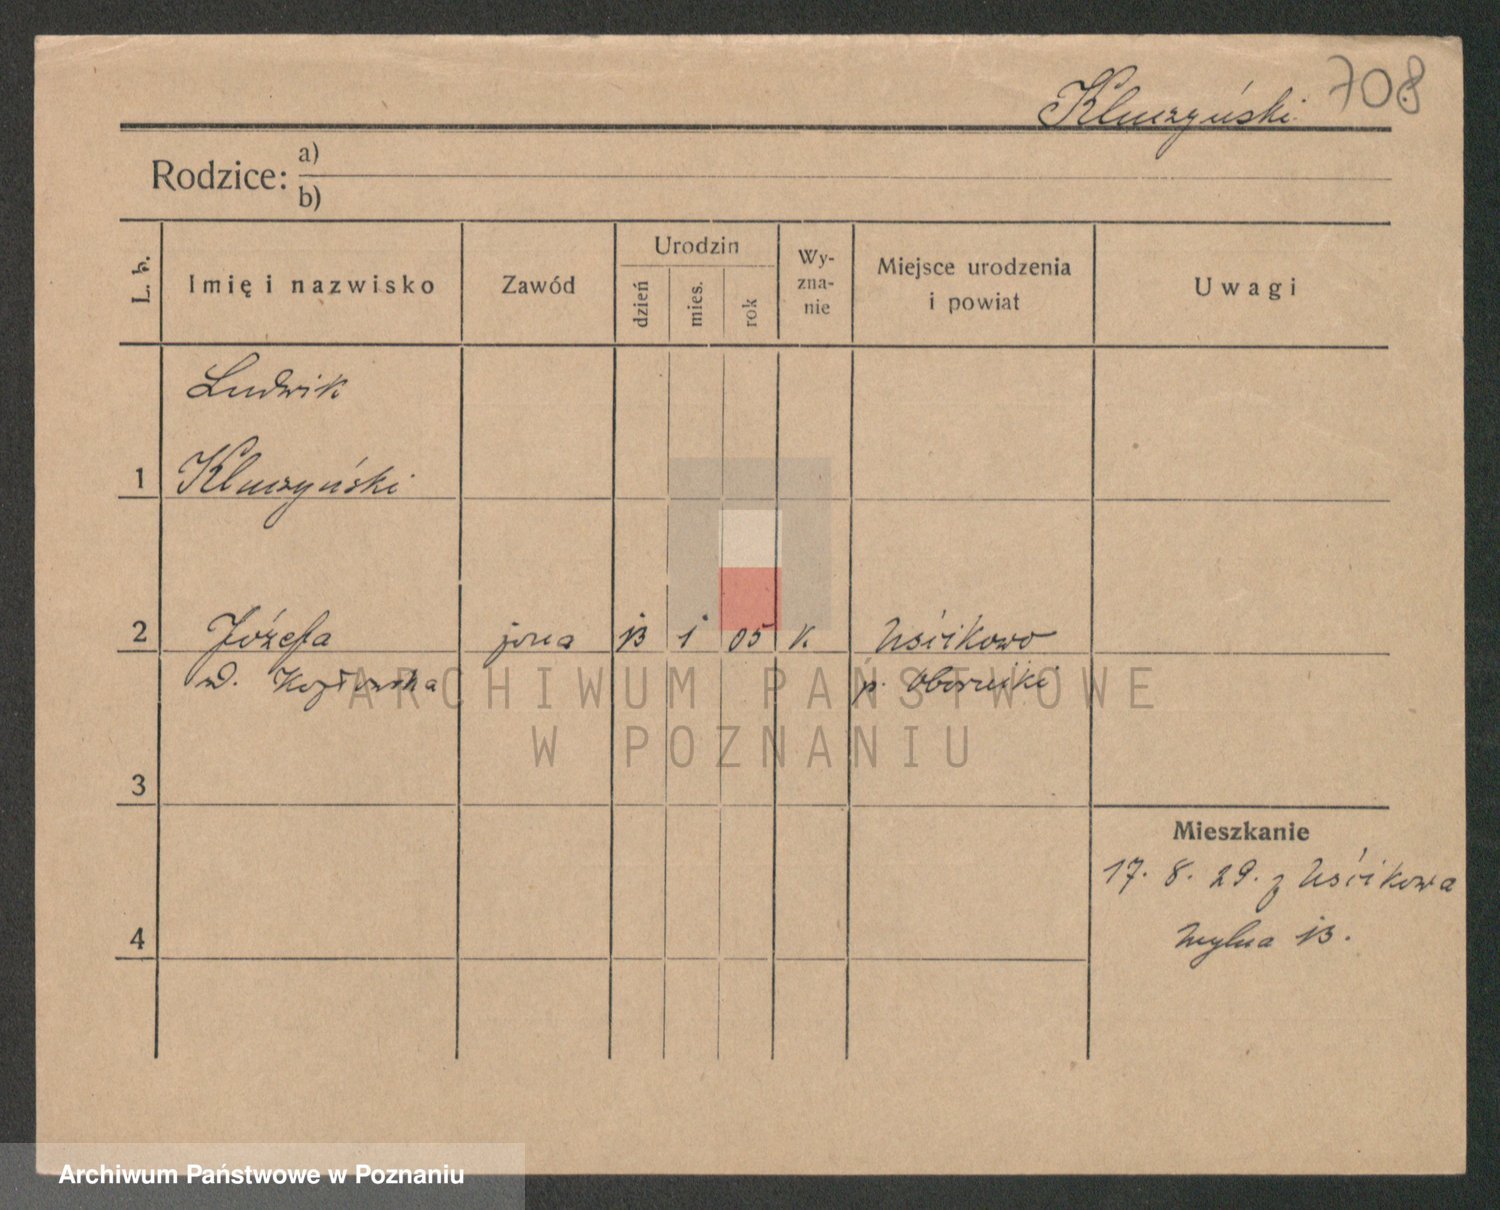 Kluczyński 708
Rodzice: a)
b)
L. b.
Imię i nazwisko
Zawód
Urodzin
dzień
mies.
rok
Wy-
zna-
nie
Miejsce urodzenia
i powiat
Uwagi
Ludwik
1 Kluczyński
2 Józefa żona 13 1 05 k. Uścikowo
d. Kozłowska p. Oborniki
ARCHIWUM PAŃSTWOWE
W POZNANIU
3
Mieszkanie
17. 8. 29. z Uścikowa
4 13.
Archiwum Państwowe w Poznaniu